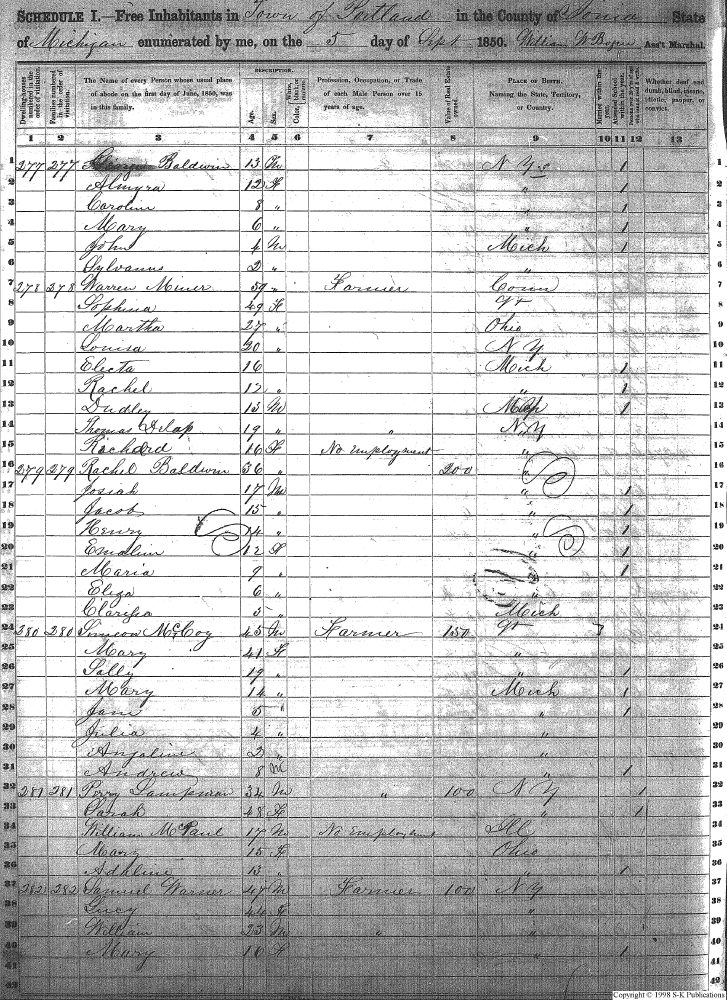 SCHEDULE I.—Free Inhabitants in Town of Portland in the County of Ionia State
of Michigan enumerated by me, on the 5 day of Sept 1850. William W Ass't Marshal.
Dwelling-houses numbered in the order of visitation.
Families numbered in the order of visitation.
The Name of every Person whose usual place of abode on the first day of June, 1850, was in this family.
DESCRIPTION.
Age.
Sex.
Color, White, black, or mulatto.
Profession, Occupation, or Trade of each Male Person over 15 years of age.
Value of Real Estate owned.
PLACE OF BIRTH. Naming the State, Territory, or Country.
Married within the year.
Attended School within the year.
Whether deaf and dumb, blind, insane, idiotic, pauper, or convict.
1 2 3 4 5 6 7 8 9 10 11 12 13
1 277 277 Baldwin 13 M N Y 1 1
2 Almyra 12 F " 1 2
3 Caroline 8 " " 1 3
4 Mary 6 " " 1 4
5 John 4 M Mich 1 5
6 Sylvanus 2 " " 6
7 278 278 Warren Miner 59 " Farmer Conn 7
8 Sophina 49 F Vt 8
9 Martha 27 " Ohio 9
10 Louisa 20 " N Y 10
11 Electa 16 " Mich 1 11
12 Rachel 12 " " 1 12
13 Dudley 13 M 1 13
14 Thomas Delap 19 " " N Y 14
15 Richard 16 F No employment " 15
16 279 279 Rachel Baldwin 36 " 200 " 16
17 Josiah 17 M " 1 17
18 Jacob 15 " " 1 18
19 Henry 14 " " 1 19
20 Emaline 12 F " 1 20
21 Maria 9 " " 1 21
22 Eliza 6 " " 22
23 Clarissa 5 " Mich 23
24 280 280 Simeon McCoy 45 M Farmer 150 Vt 24
25 Mary 41 F " 25
26 Sally 19 " " 1 26
27 Mary 14 " Mich 1 27
28 Jane 5 " " 1 28
29 Julia 4 " " 29
30 Angaline 2 " " 30
31 Andrew 8 M " 1 31
32 281 281 Perry Lampman 34 M " 100 N Y 1 32
33 Sarah 48 F " 1 33
34 William McPaul 17 M No employment Ill 34
35 Mary 15 F Ohio 35
36 Adaline 13 " " 1 36
37 282 282 Samuel Warner 47 M Farmer 100 N Y 37
38 Lucy 44 F " 38
39 William 23 M " " 39
40 Mary 16 F " 1 40
41 41
42 42
Copyright © 1998 S-K Publications